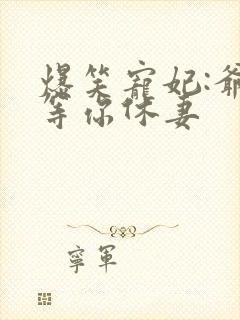 爆笑寵妃:爺
等你休妻
寧軍